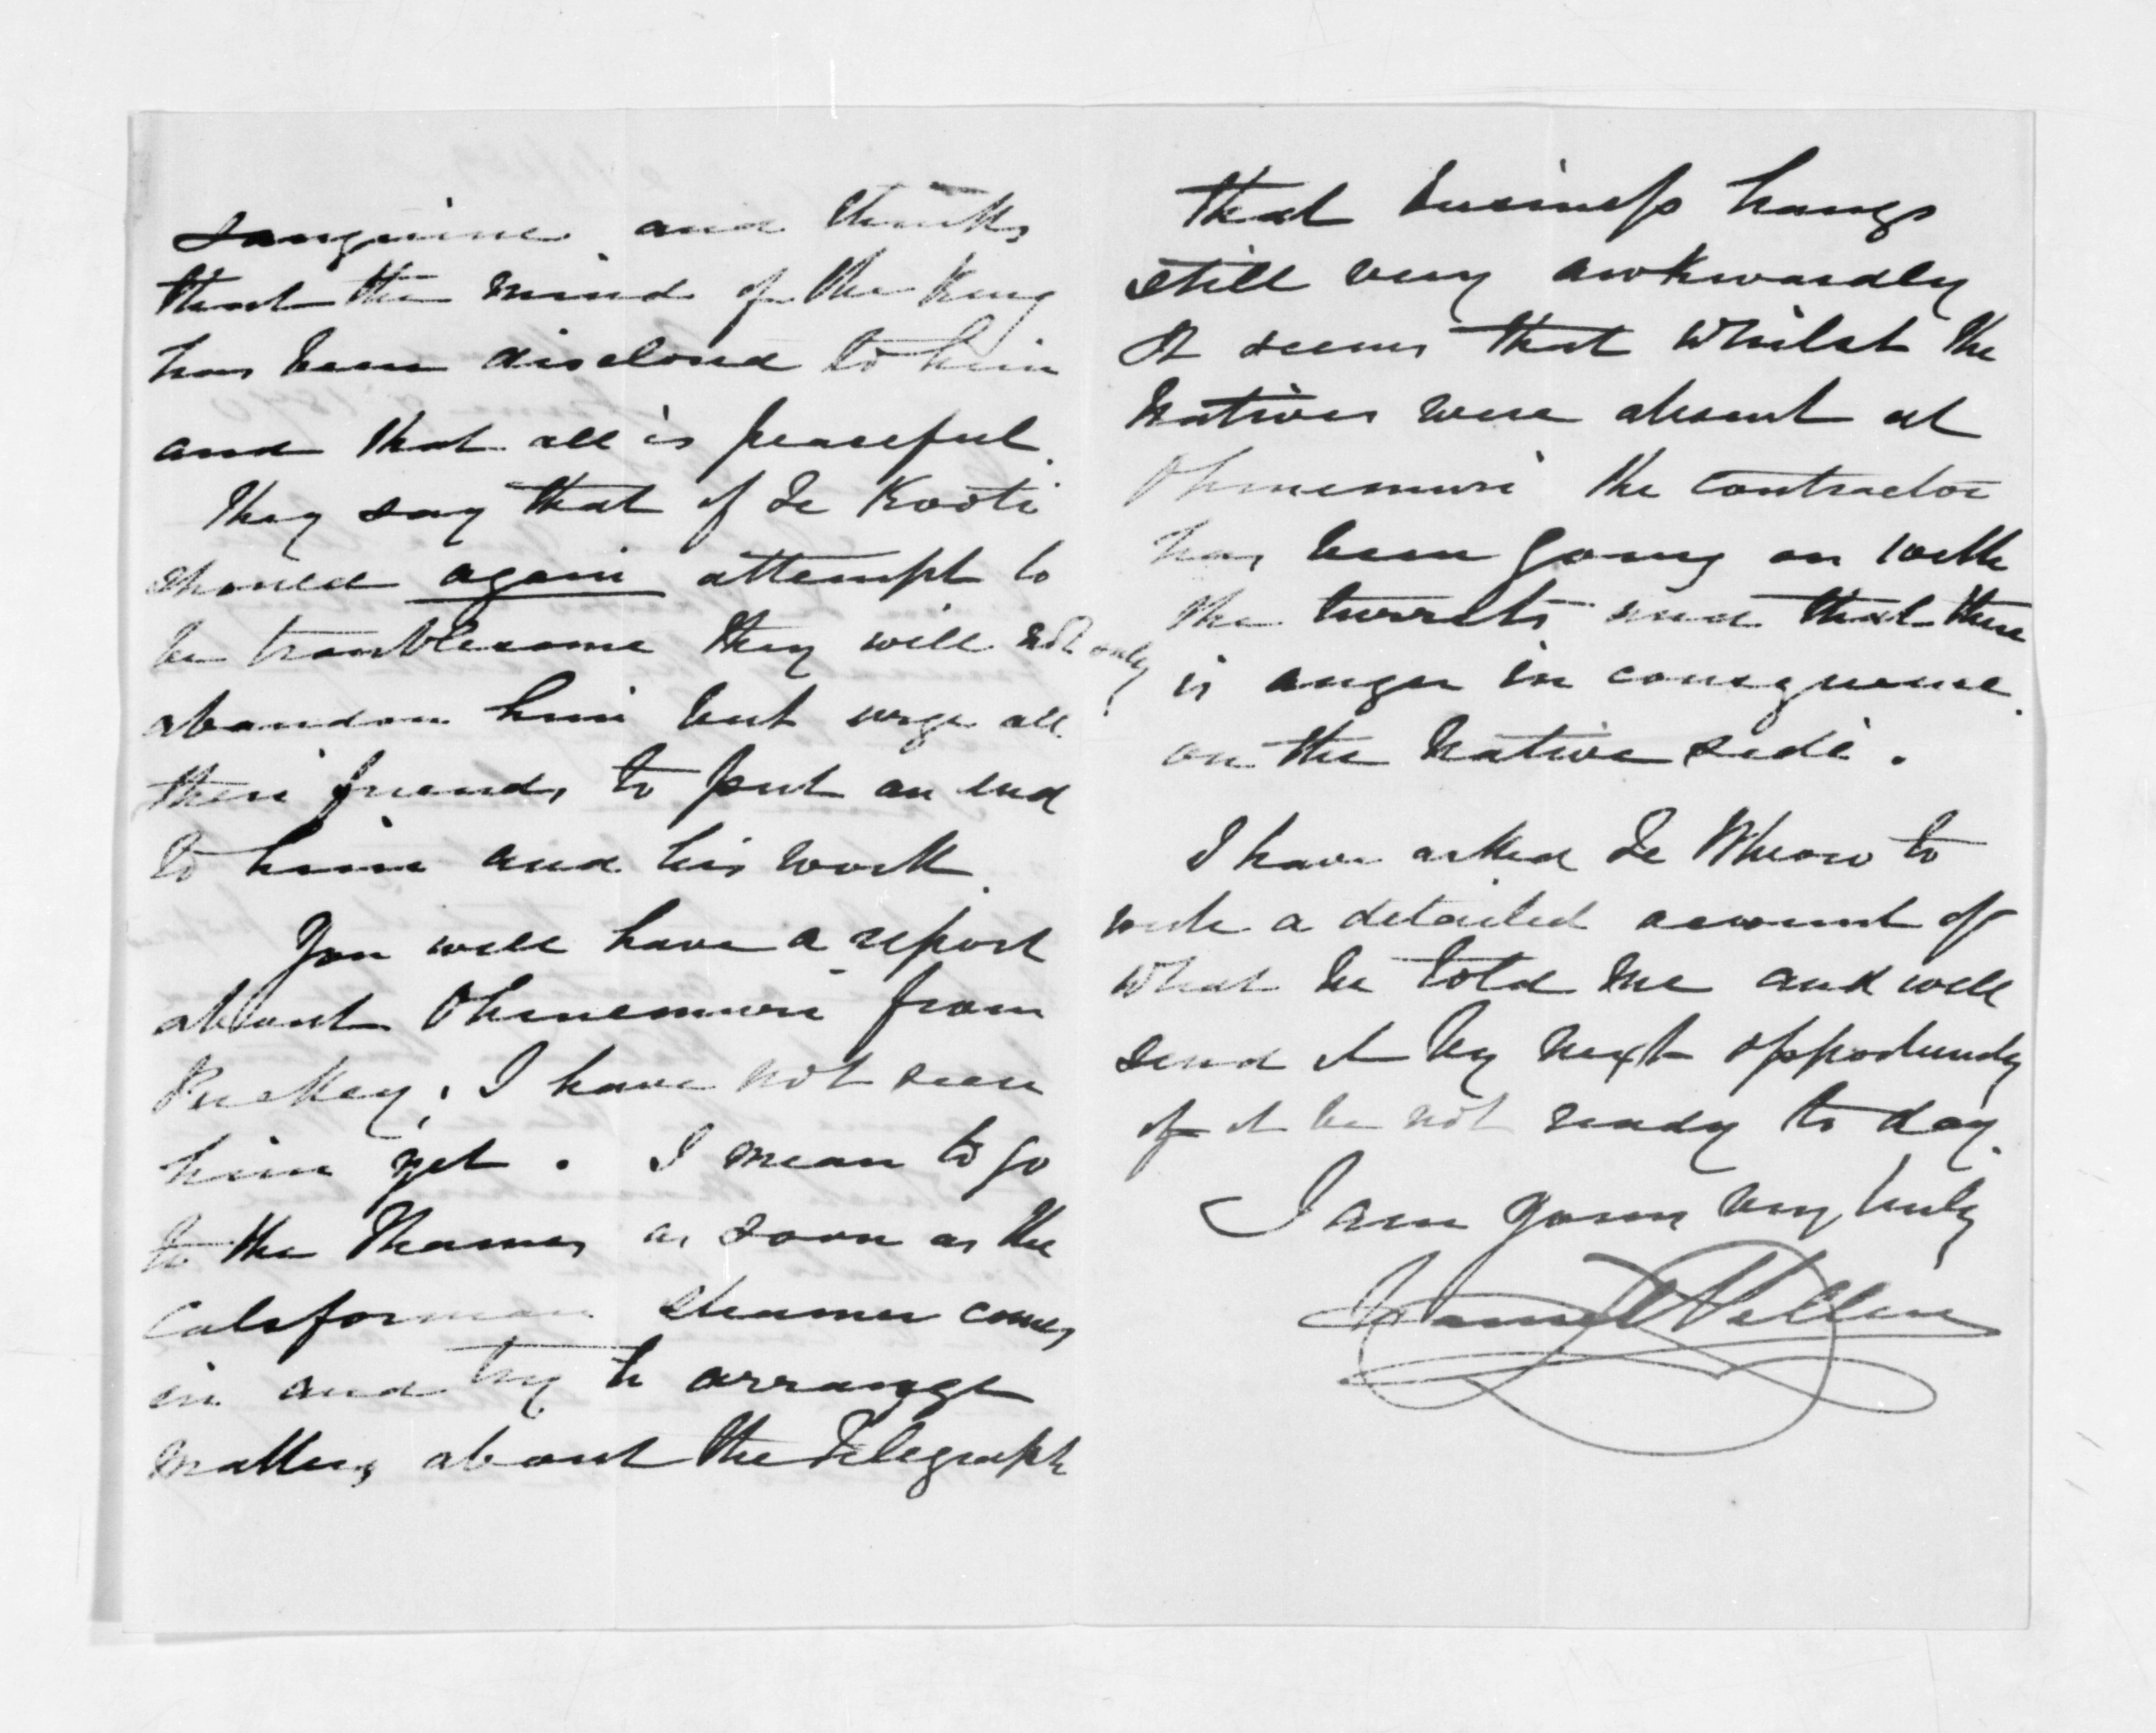 sanguine and thinks
that the mind of the King
has been disclosed to him
and that all is peaceful.
They say that if Te Kooti
should again attempt to
be troublesome they will not only
abandon him but urge all
their friends to put an end
to him and his work.
You will have a report
about Ohinemuri from
Puckey; I have not seen
him yet. I mean to go
to the Thames as soon as the
Californian steamer comes
in and try to arrange
matters about the Telegraph
that business hangs
still very awkwardly
It seems that whilst the
Natives were absent at
Ohinemuri the contractor
has been going on with
the and that there
is anger in consequence
on the Native side.
I have asked Te Wheoro to
write a detailed account of
what he told me and will
send it by next opportunity
if it be not ready to day.
I am yours very truly
Daniel Pollen